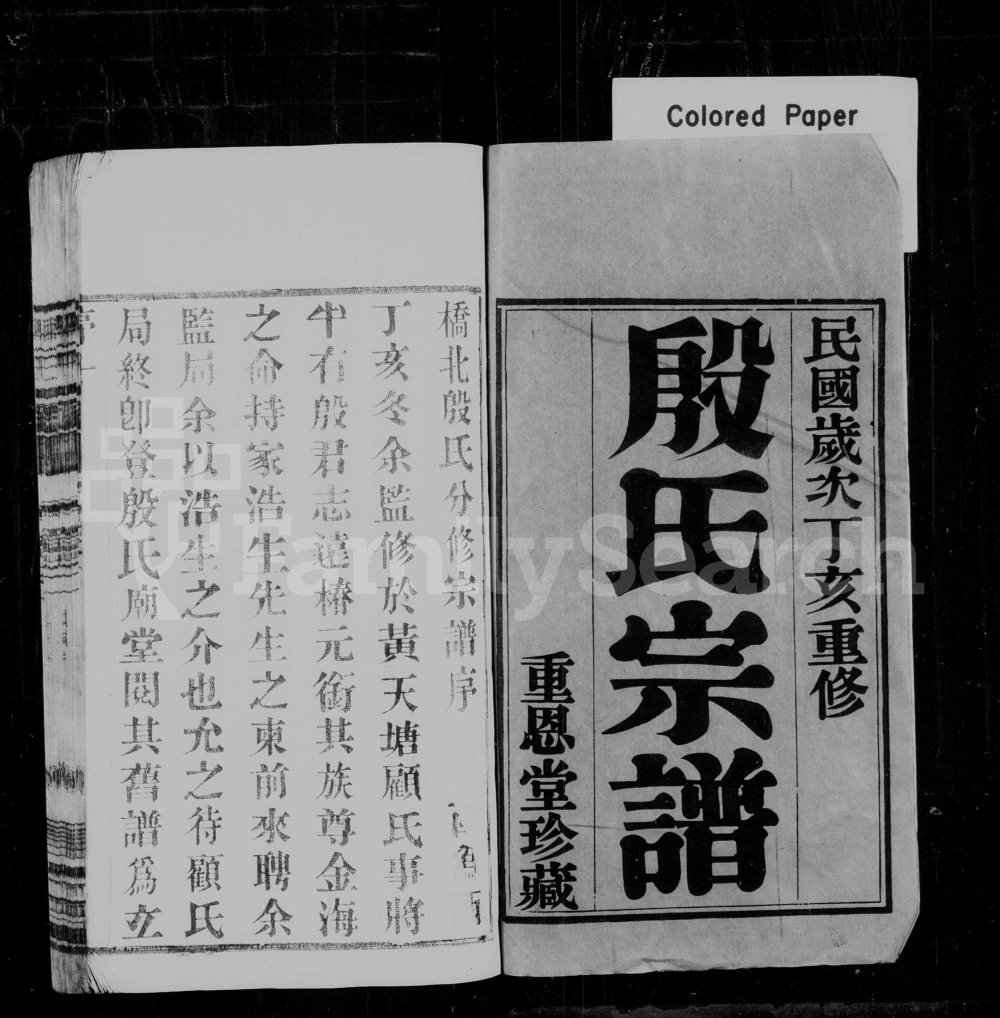 Colored Paper
民國歲次丁亥重修
殷氏宗譜
重恩堂珍藏
橋北殷氏分修宗譜序
丁亥冬余監修於黃天塘顧氏事將
半有殷君志達椿元銜其族尊金海
之命持家浩生先生之柬前來聘余
監局余以浩生之介也允之待顧氏
局終卽登殷氏廟堂閱其舊譜爲立
FamilySearch